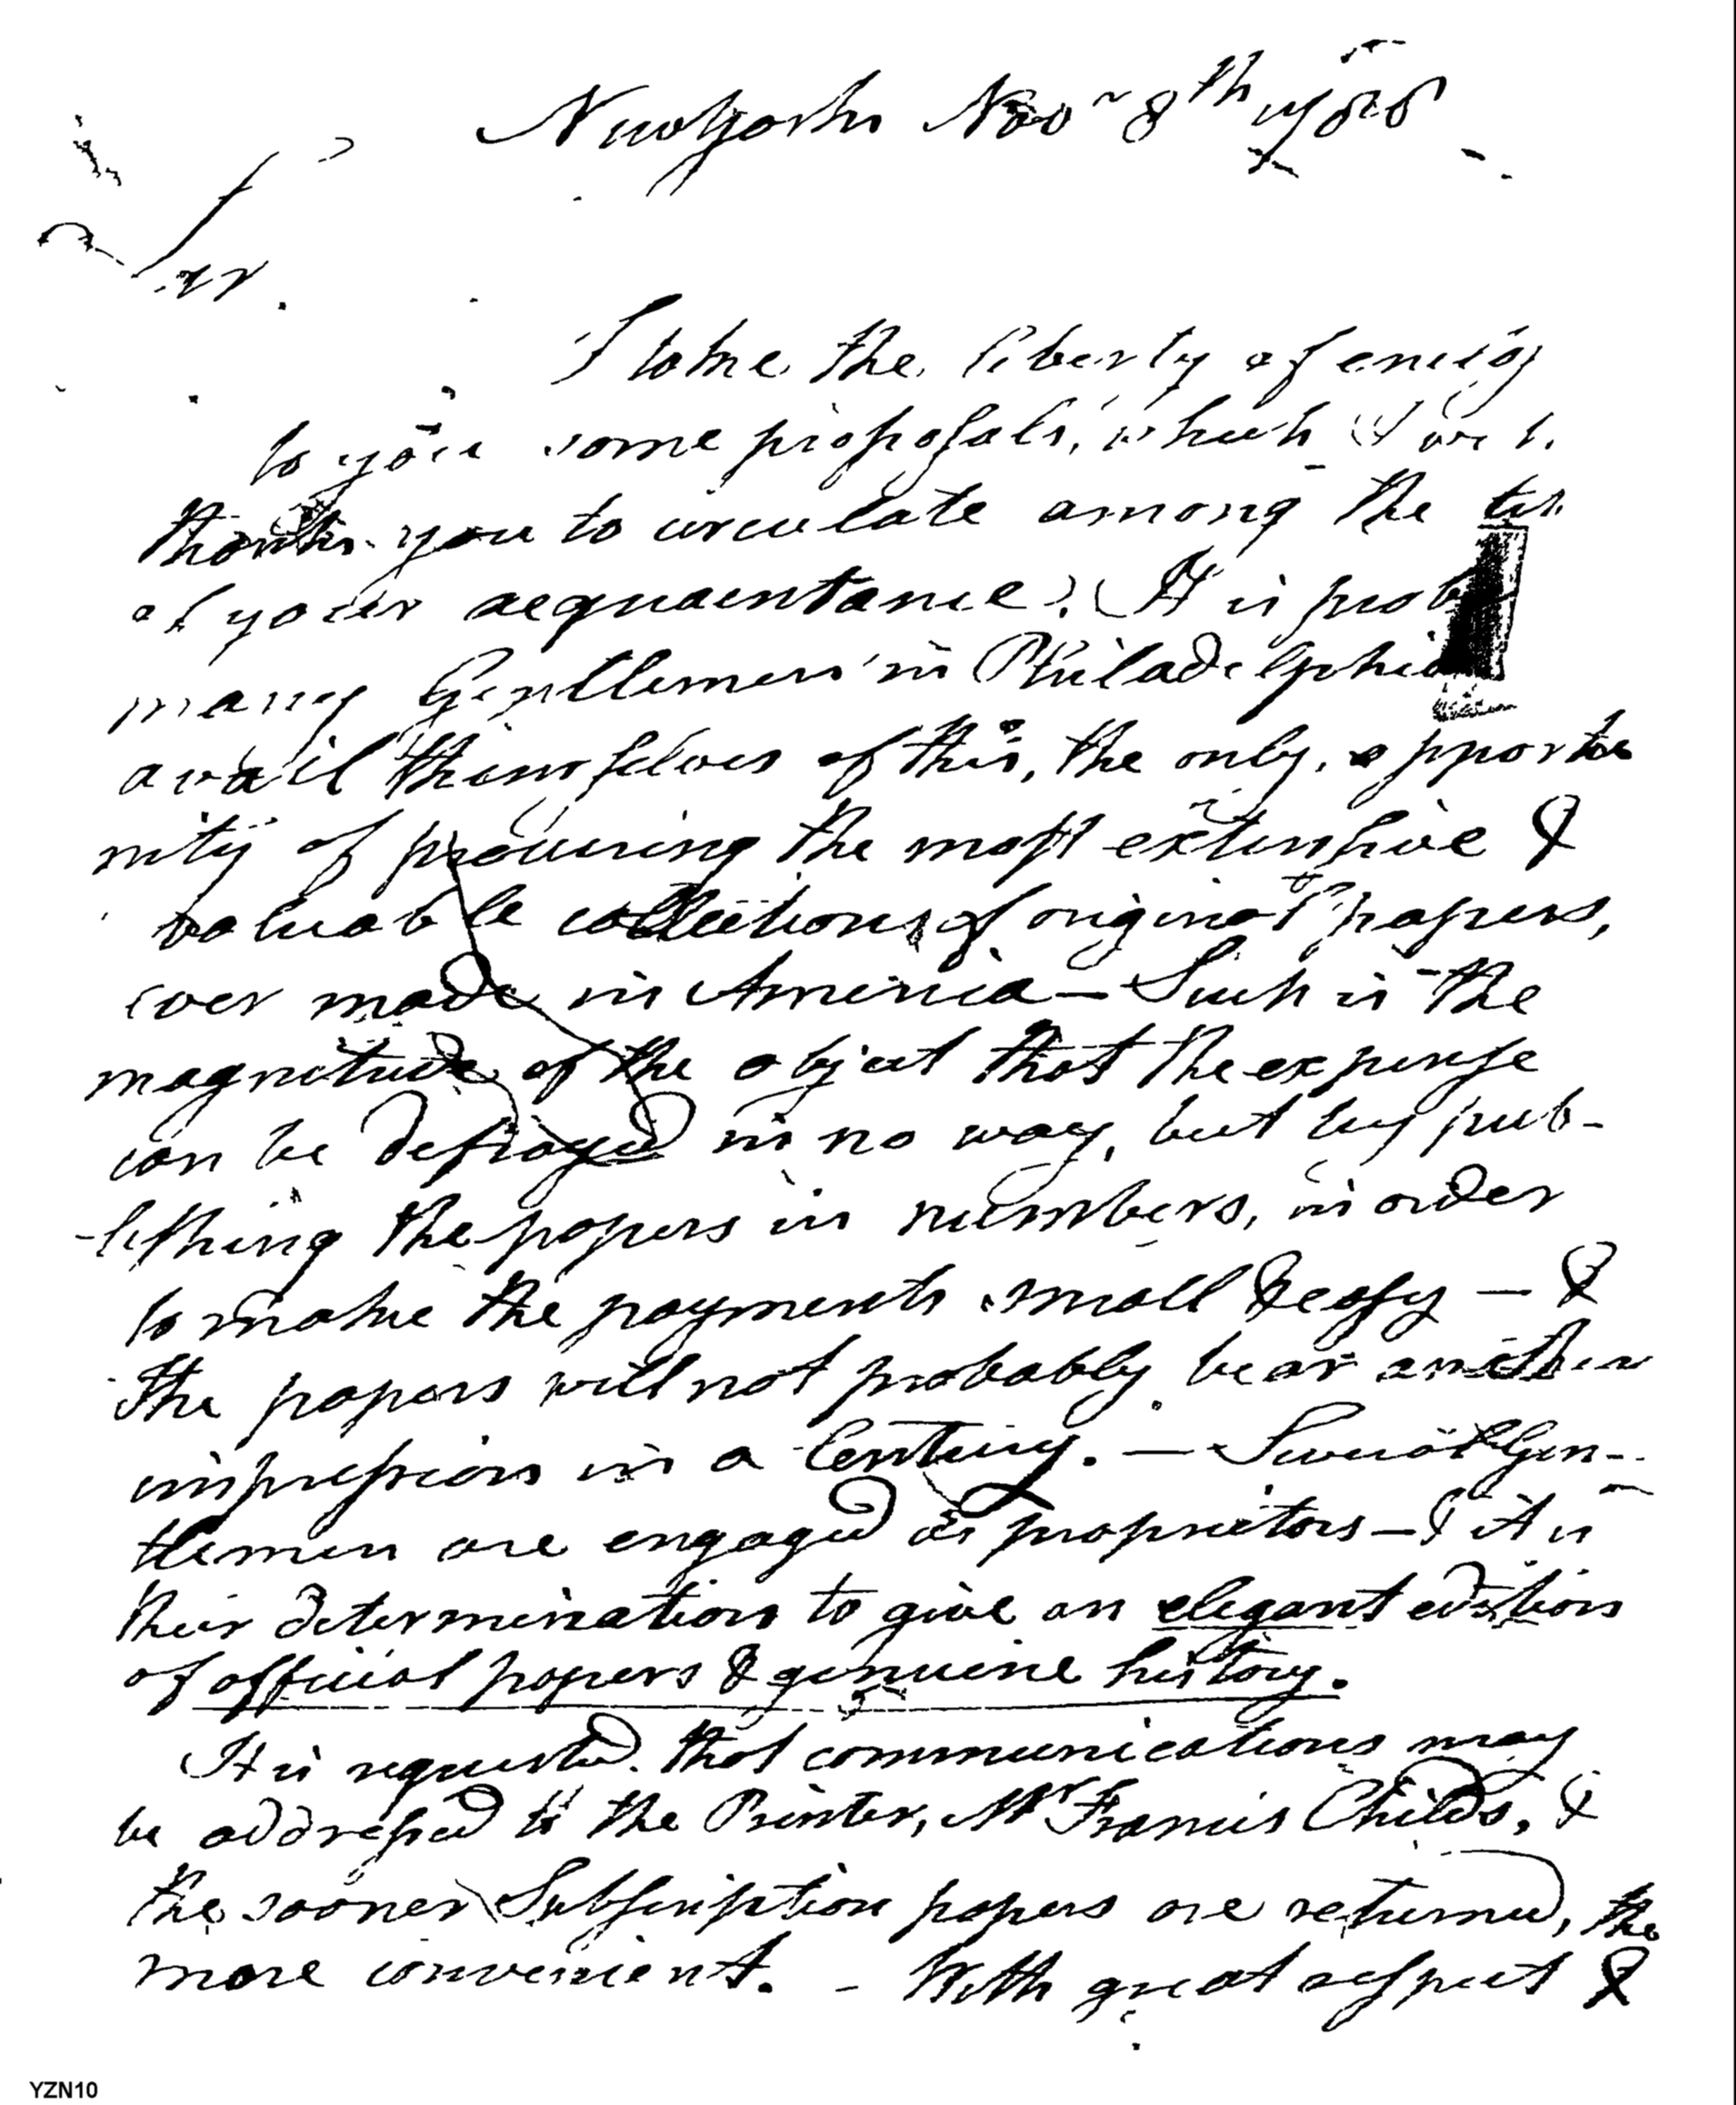 New York Novr 8th 1788
Sir.
I take the liberty of
to you some proposals, which I
thank you to circulate among the
of your acquaintance. It is
many Gentlemen in Philadelphia
avail themselves of this, the only, opportu
nity of procuring the most extensive &
valuable collections of original papers,
ever made in America — Such is the
magnitude of the object that the expense
can be defrayed in no way, but by pub-
-lishing the papers in numbers, in order
to make the payments small & easy — &
the papers will not probably bear another
impression in a Century. — Several Gen-
tlemen are engaged as proprietors — & it is
their determination to give an elegant edition
of official papers & genuine history.
It is requested that communications may
be addressed to the Printer, Mr Francis Childs, &
the sooner Subscription papers are returned, the
more convenient. - With great respect &
YZN10